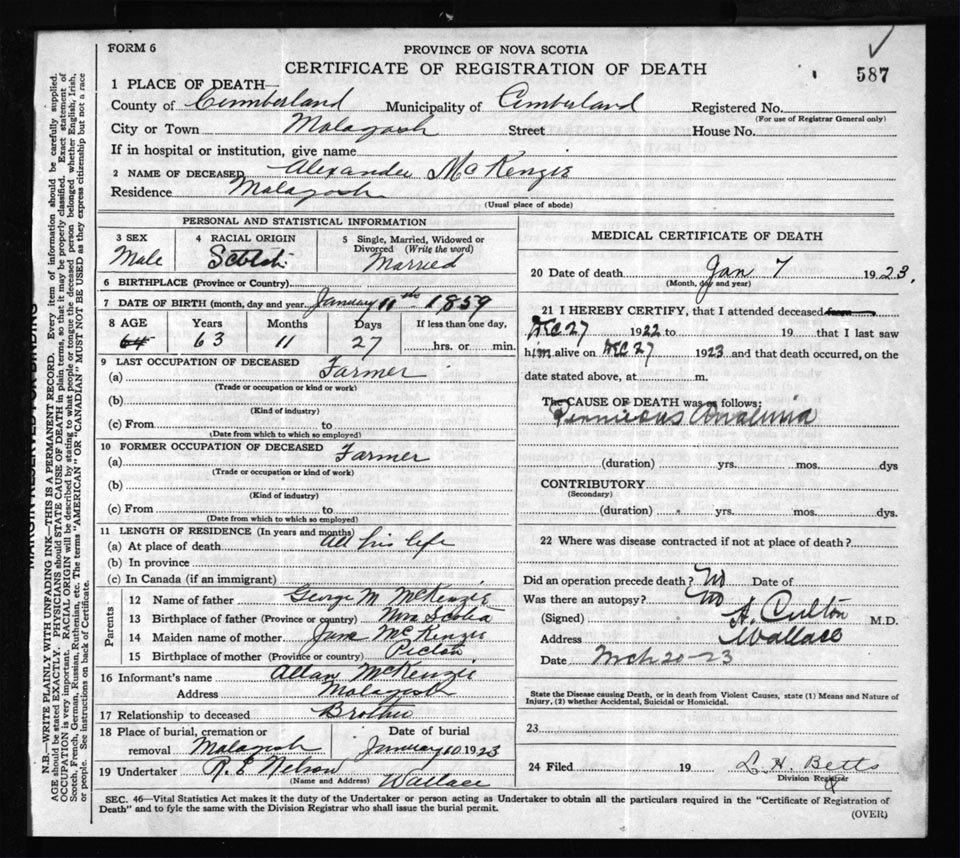 FORM 6
PROVINCE OF NOVA SCOTIA
587
CERTIFICATE OF REGISTRATION OF DEATH
1 PLACE OF DEATH—
County of Cumberland Municipality of Cumberland Registered No.
(For use of Registrar General only)
City or Town Malagash Street House No.
If in hospital or institution, give name
2 NAME OF DECEASED Alexander McKenzie
Residence Malagash
(Usual place of abode)
PERSONAL AND STATISTICAL INFORMATION
3 SEX
Male
4 RACIAL ORIGIN
Scotch
5 Single, Married, Widowed or
Divorced (Write the word)
Married
6 BIRTHPLACE (Province or Country)
7 DATE OF BIRTH (month, day and year) January 11th 1859
8 AGE Years Months Days If less than one day,
64 63 11 27 hrs. or min.
9 LAST OCCUPATION OF DECEASED
(a) Farmer
(Trade or occupation or kind or work)
(b)
(Kind of industry)
(c) From to
(Date from which to which so employed)
10 FORMER OCCUPATION OF DECEASED
(a) Farmer
(Trade or occupation or kind of work)
(b)
(Kind of industry)
(c) From to
(Date from which to which so employed)
11 LENGTH OF RESIDENCE (In years and months)
(a) At place of death All his life
(b) In province
(c) In Canada (if an immigrant)
Parents
12 Name of father George M McKenzie
13 Birthplace of father (Province or country) Nova Scotia
14 Maiden name of mother Jane McKenzie
15 Birthplace of mother (Province or country) Pictou
16 Informant's name Allan McKenzie
Address Malagash
17 Relationship to deceased Brother
18 Place of burial, cremation or Date of burial
removal Malagash January 10. 1923
19 Undertaker R. E Nelson
(Name and Address) Wallace
MEDICAL CERTIFICATE OF DEATH
20 Date of death Jan 7 1923.
(Month, day and year)
21 I HEREBY CERTIFY, that I attended deceased from
DEC 27 1922 to 19 that I last saw
him alive on DEC 27 1923 and that death occurred, on the
date stated above, at m.
The CAUSE OF DEATH was as follows:
Pernicious Anaemia
(duration) yrs. mos. dys
CONTRIBUTORY
(Secondary)
(duration) yrs. mos. dys.
22 Where was disease contracted if not at place of death?
Did an operation precede death? No Date of
Was there an autopsy? No
(Signed) A. Culton M.D.
Address Wallace
Date Mch 20-23
State the Disease causing Death, or in death from Violent Causes, state (1) Means and Nature of
Injury, (2) whether Accidental, Suicidal or Homicidal.
23
24 Filed 19 L. H. Betts
Division Registrar
SEC. 46—Vital Statistics Act makes it the duty of the Undertaker or person acting as Undertaker to obtain all the particulars required in the "Certificate of Registration of
Death" and to fyle the same with the Division Registrar who shall issue the burial permit.
(OVER)
MARGIN RESERVED FOR BINDING
N.B.—WRITE PLAINLY WITH UNFADING INK—THIS IS A PERMANENT RECORD. Every item of information should be carefully supplied.
AGE should be stated EXACTLY. PHYSICIANS should STATE CAUSE OF DEATH in plain terms, so that it may be properly classified. Exact statement of
OCCUPATION is very important. RACIAL ORIGIN will be described by stating to what people or tongue the deceased person belonged whether English, Irish,
Scotch, French, German, Russian, Ruthenian, etc. The terms "AMERICAN" OR "CANADIAN" MUST NOT BE USED as they express citizenship but not a race
or people. See instructions on back of Certificate.